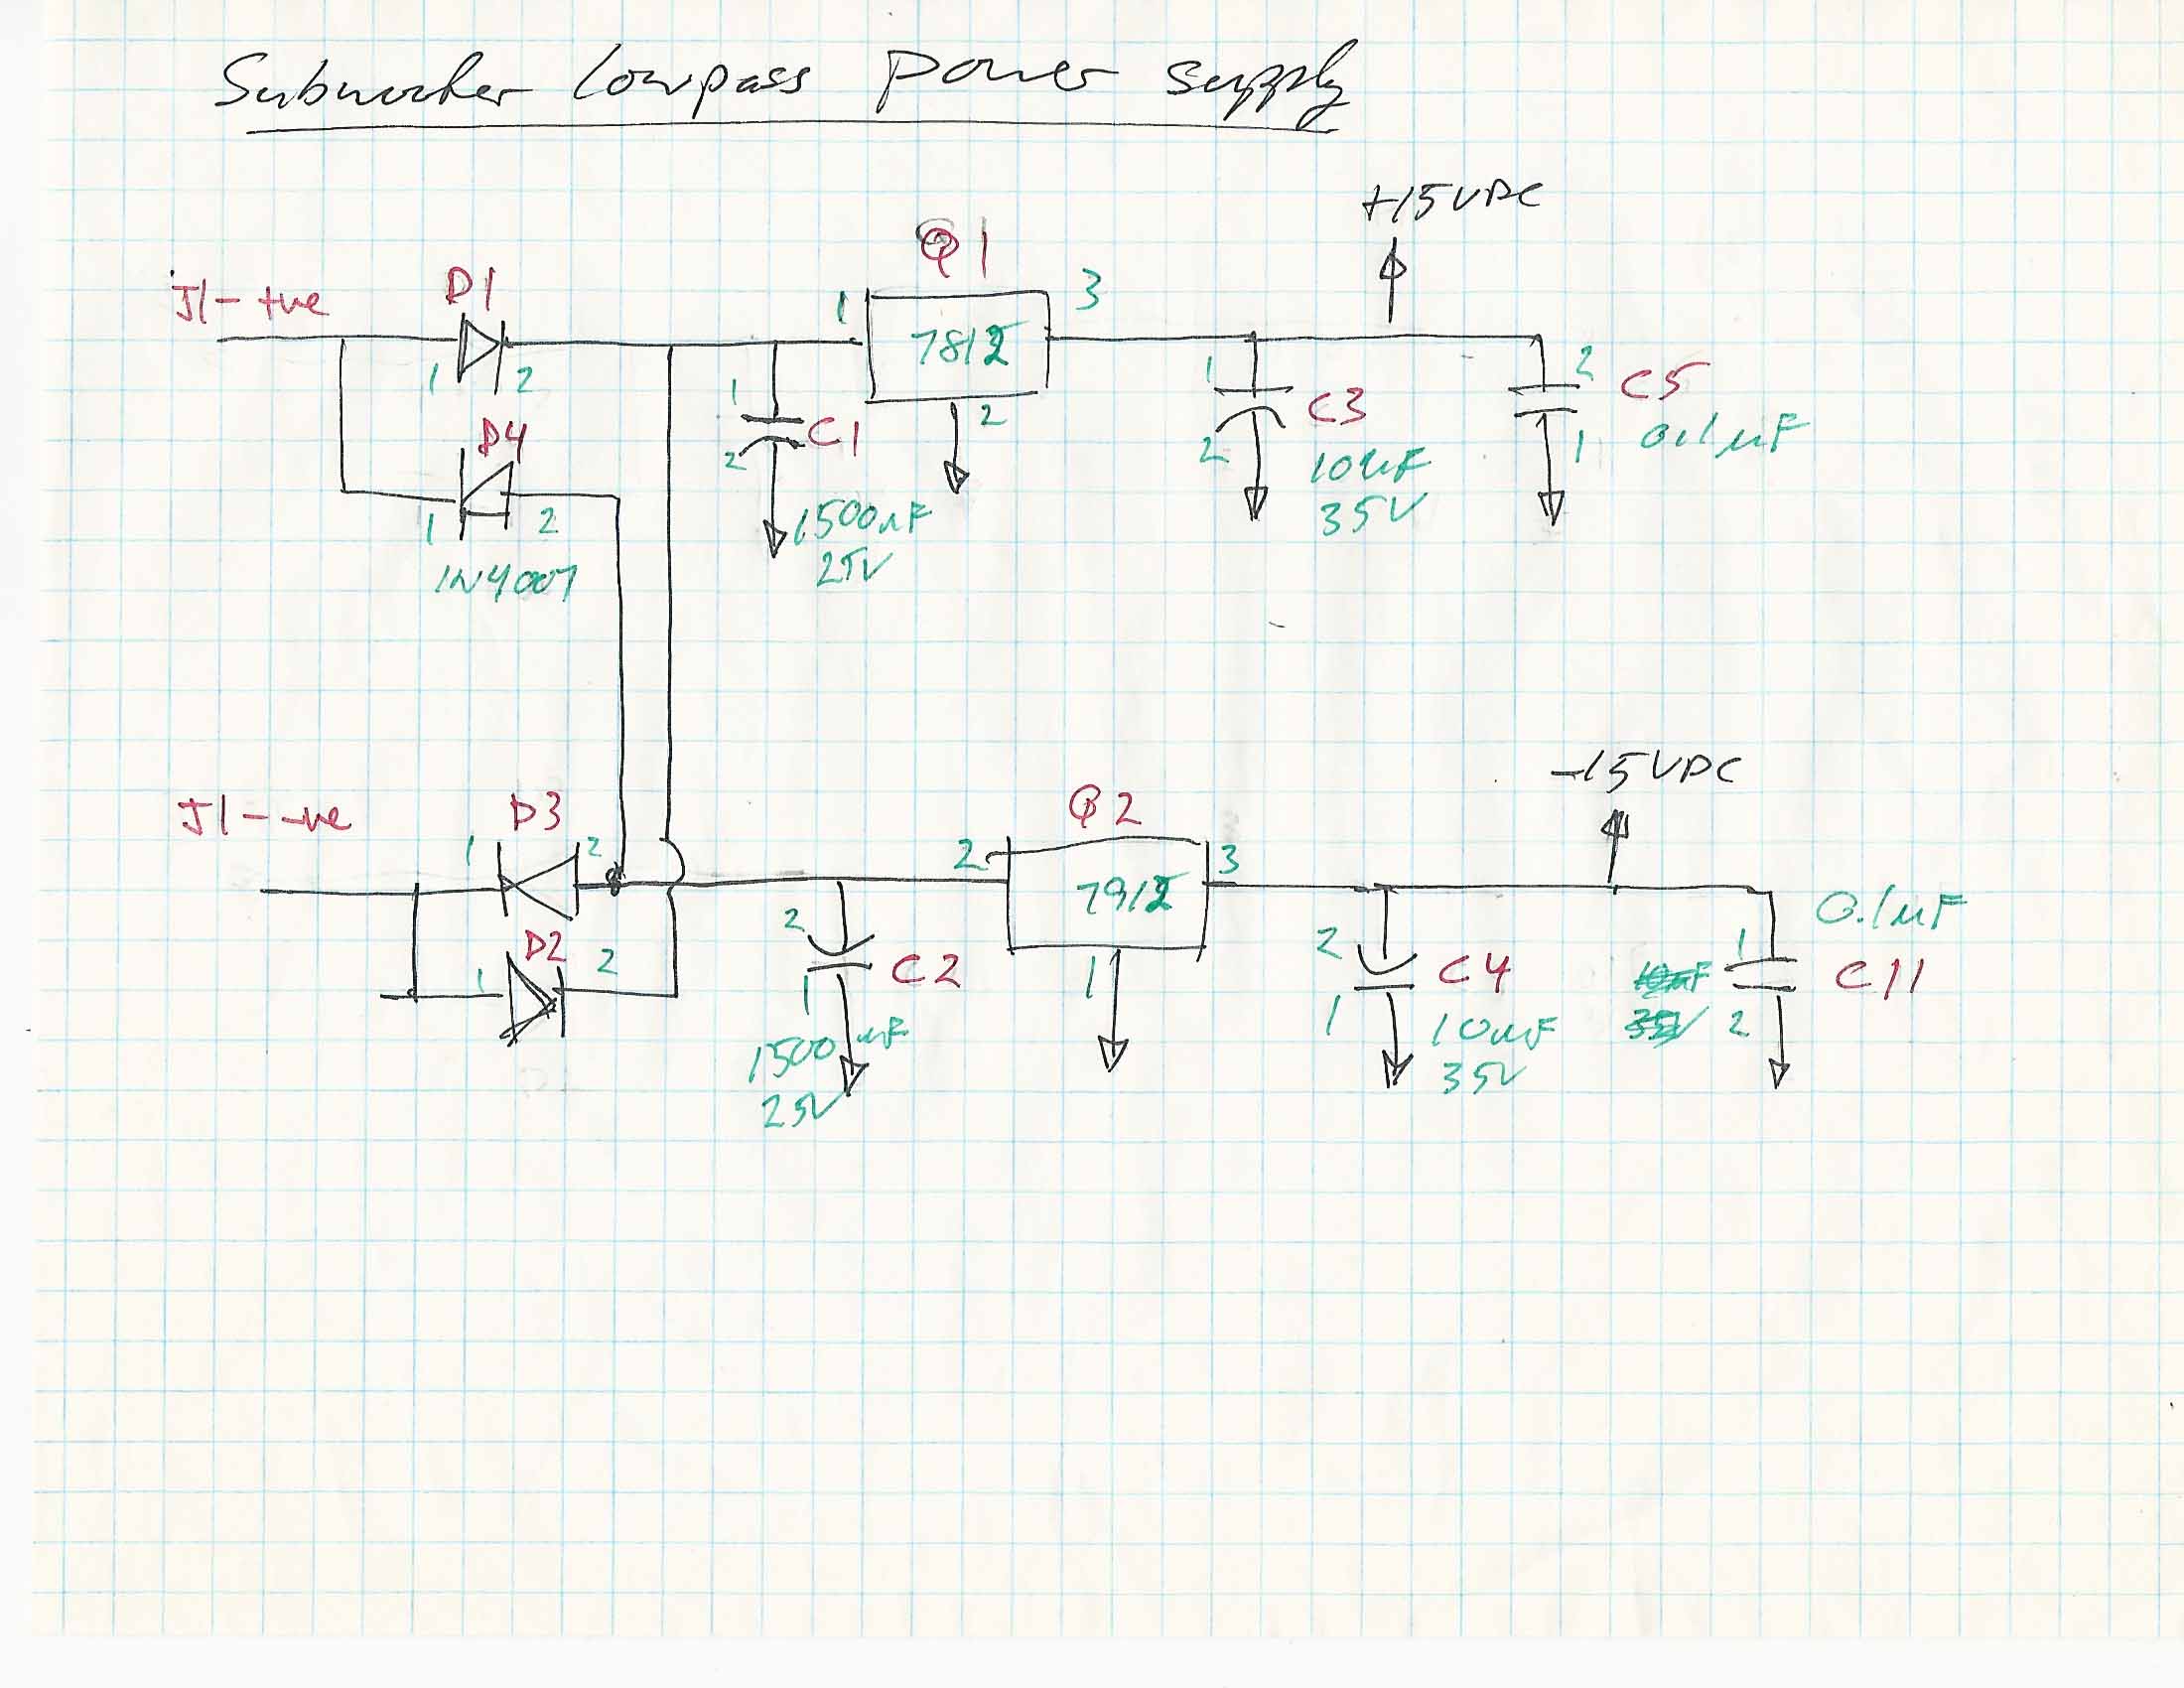 Subwoofer Lowpass Power Supply
+15VDC
Q1
J1 - +ve
D1
1
3
7812
1
2
2
1
2
C5
D4
C1
2
1
C3
2
1
0.1uF
10uF
35V
1
2
1500uF
25V
1N4007
-15VDC
Q2
J1 - -ve
D3
1
2
2
3
7912
0.1uF
D2
1
2
2
C2
1
1
2
C4
1
1
C11
2
1500uF
25V
10uF
35V